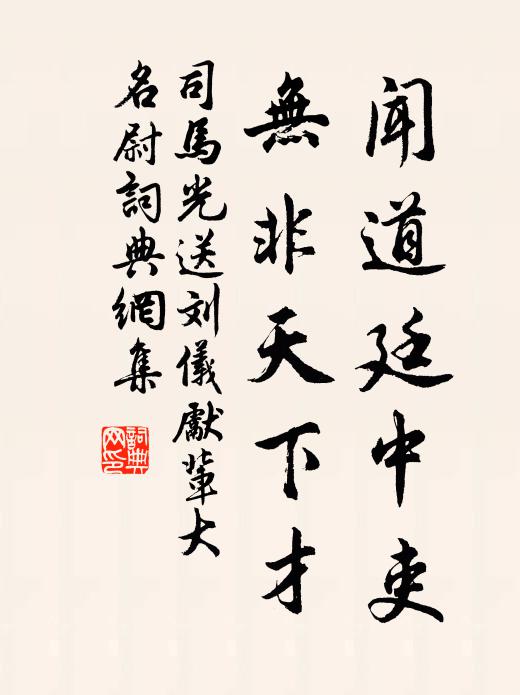 闻道廷中吏
無非天下才
司馬光送刘儀獻輩大
名尉詞典網集
詞典
网印